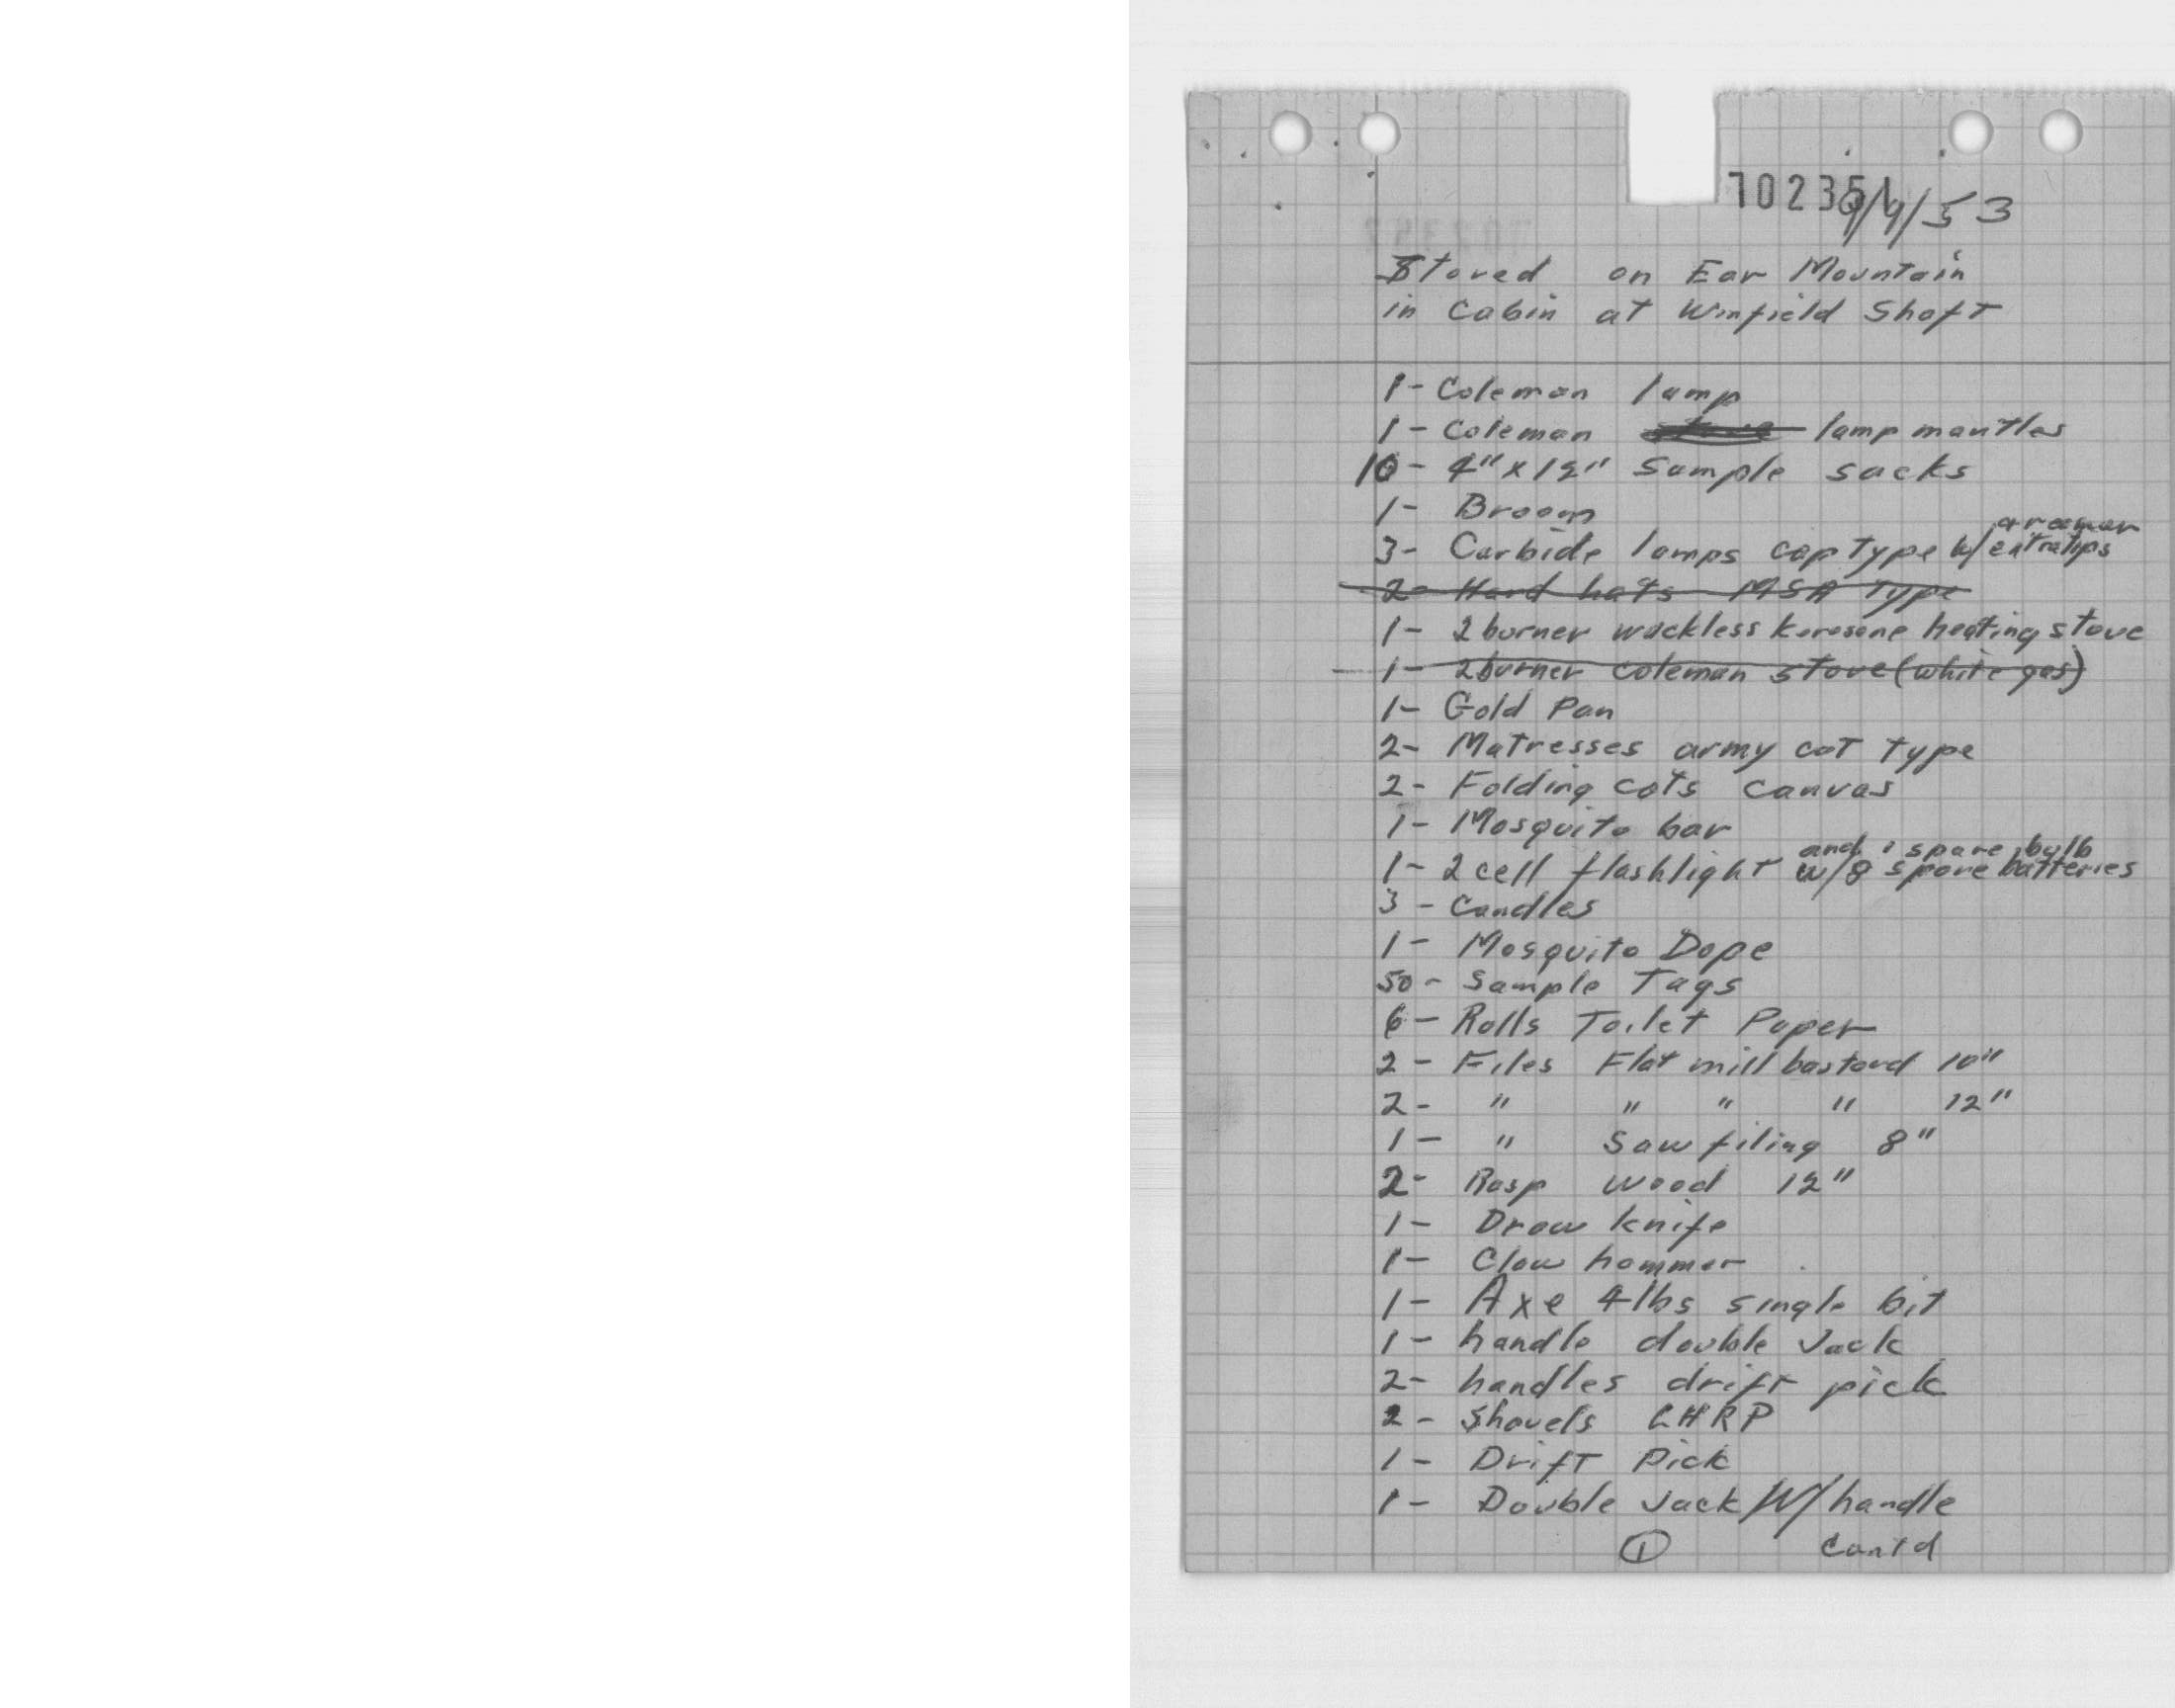 702351
9/9/53
Stored on Ear Mountain
in Cabin at Winfield Shaft
1- Coleman lamp
1- Coleman stove lamp mantles
10- 4" x 12" Sample sacks
1- Broom
& reamer
3- Carbide lamps cap type w/ extra tips
2- Hard hats MSA type
1- 2 burner wickless kerosene heating stove
1- 2 burner Coleman stove (white gas)
1- Gold Pan
2- Matresses army cot type
2- Folding cots canvas
1- Mosquito bar
and 1 spare bulb
1- 2 cell flashlight w/8 spare batteries
3- Candles
1- Mosquito Dope
50- Sample Tags
6- Rolls Toilet Paper
2- Files Flat mill bastard 10"
2- " " " " 12"
1- " Saw filing 8"
2- Rasp wood 12"
1- Draw knife
1- Claw hammer
1- Axe 4lbs single bit
1- handle double Jack
2- handles drift pick
2- Shovels LHRP
1- Drift Pick
1- Double Jack W/ handle
1 Cont'd